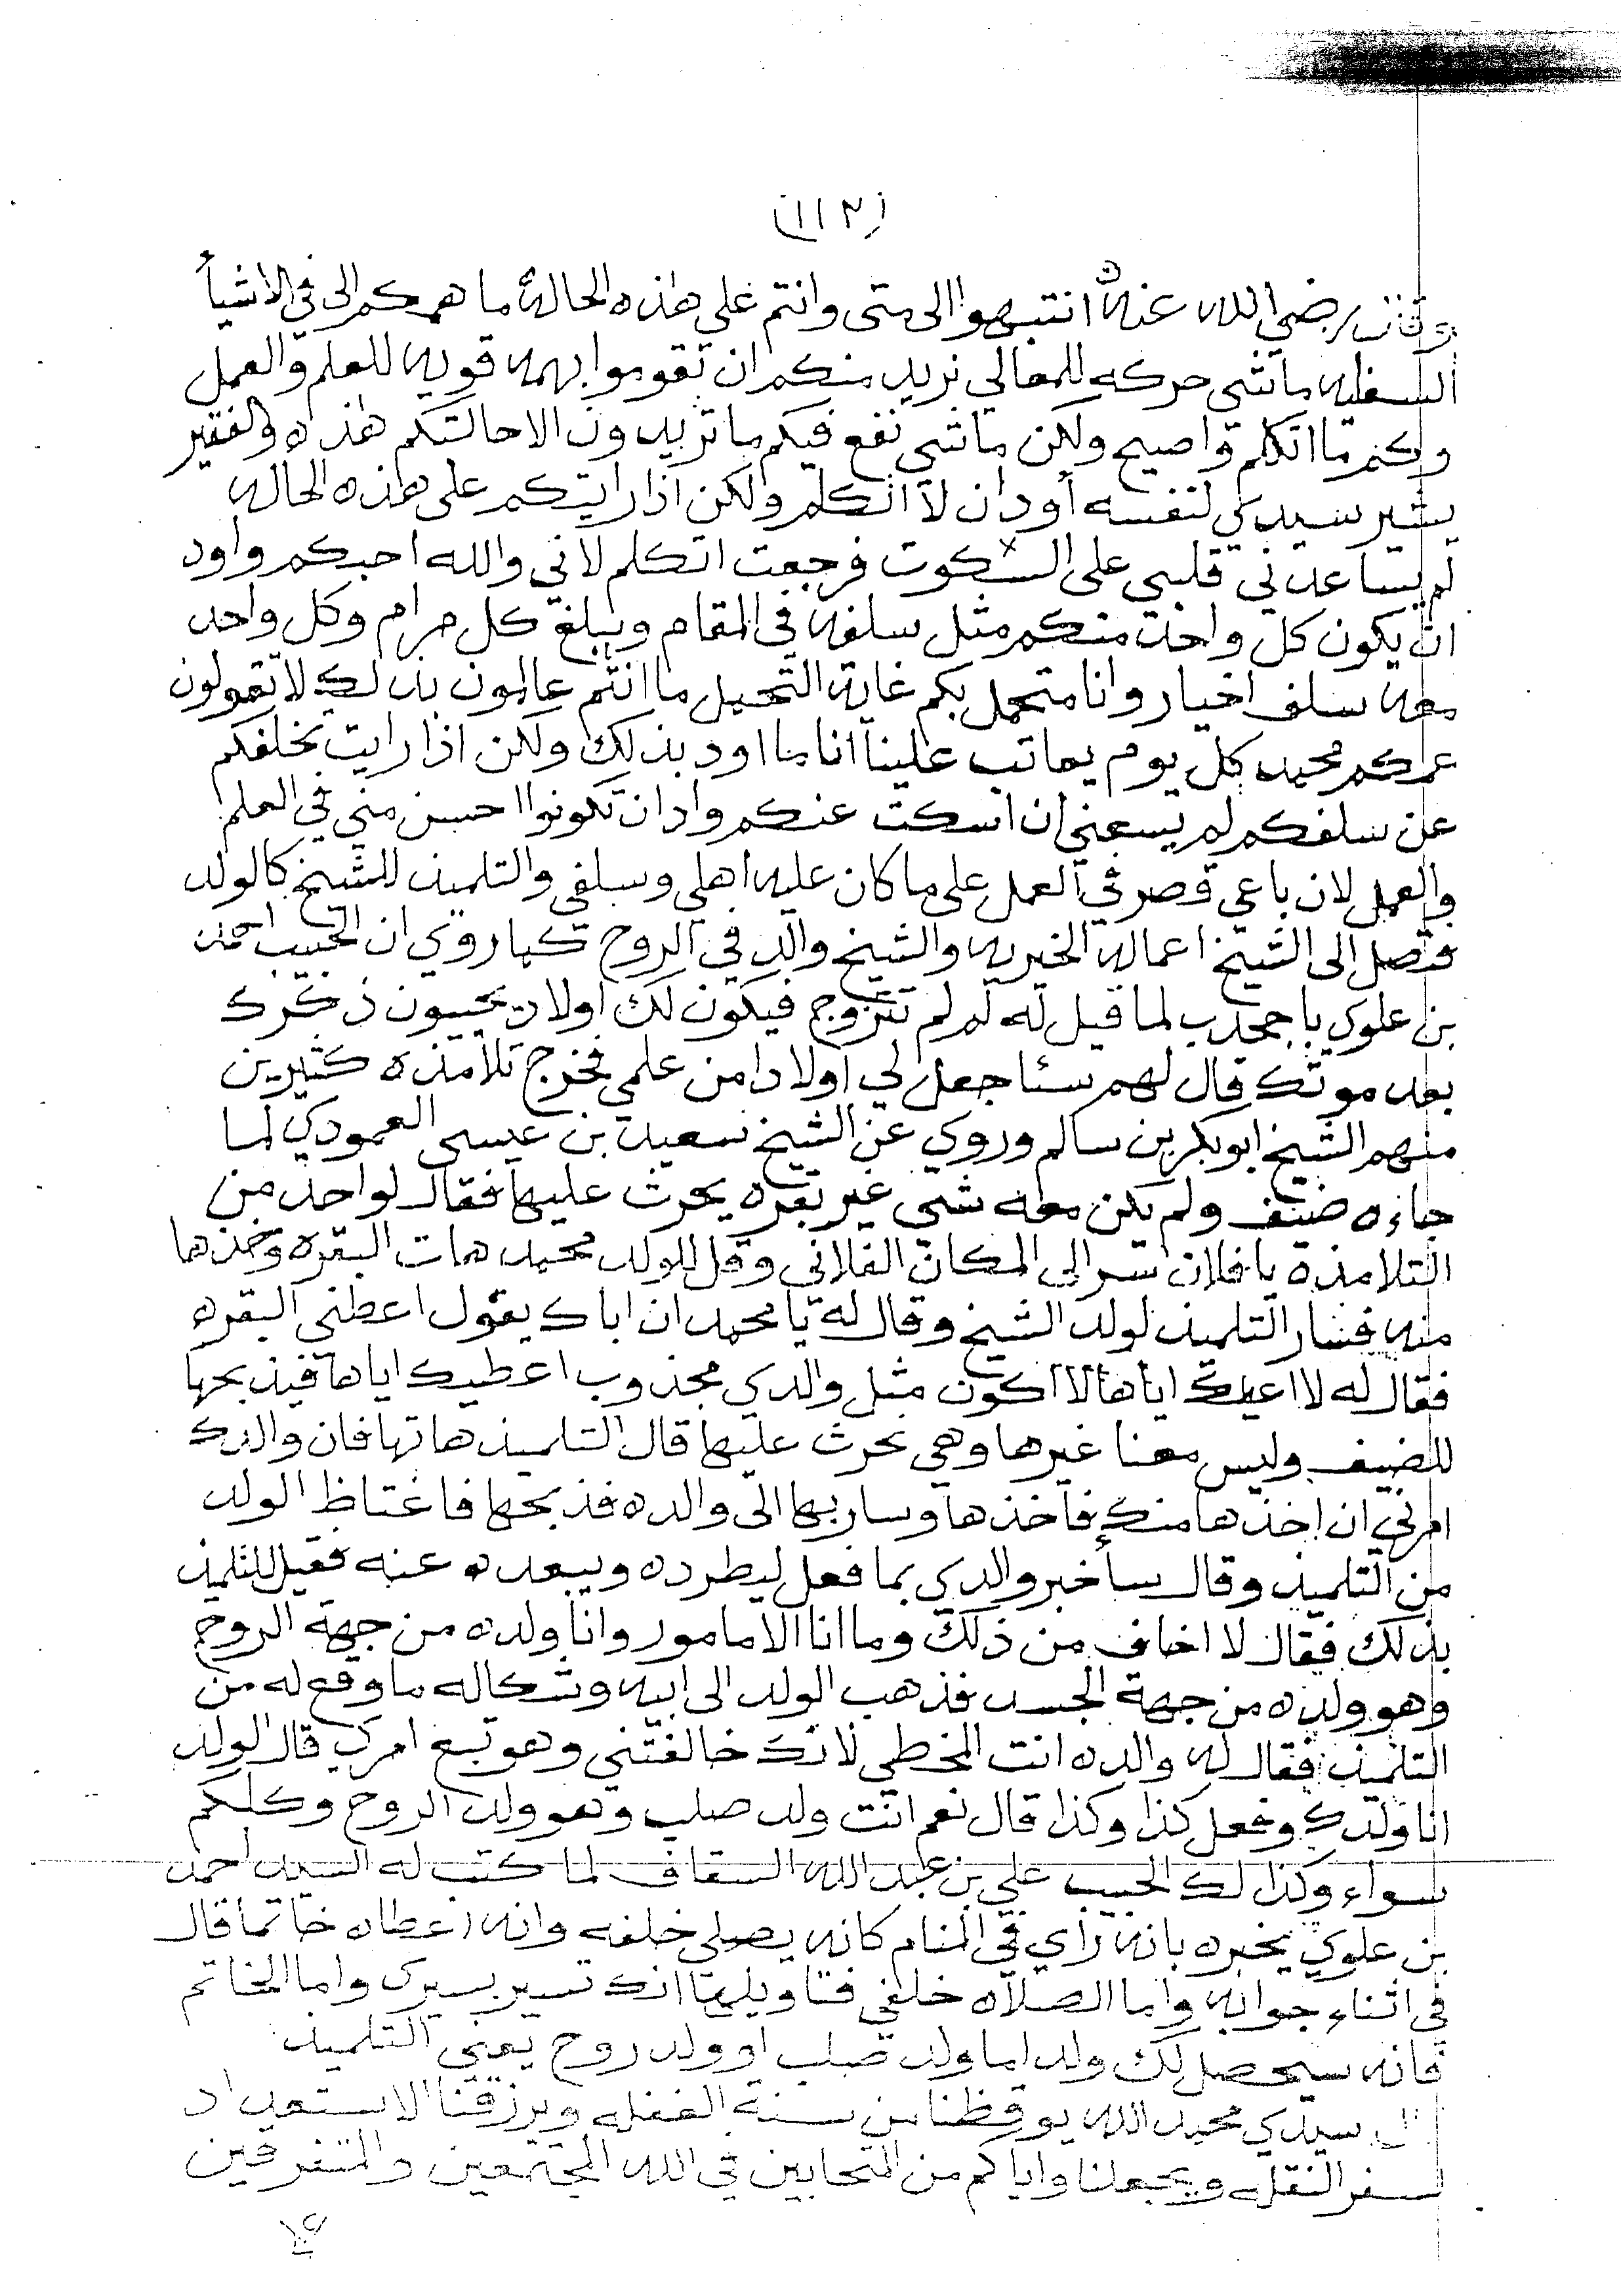 (١١٢)
وقال رضي الله عنه انتبهوا الى متى وانتم على هذه الحالة ما همكم الى في الاشيأ
السفليه ماشي حركه للمعالي نريد منكم ان تقوموا بهمه قويه للعلم والعمل
وكم ما اتكلم واصيح ولكن ماشي نفع فيكم ما تريدون الا حالتكم هذه والفقير
يشير سيدي لنفسه أود ان لا اتكلم ولكن اذا رايتكم على هذه الحاله
لم يساعدني قلبي على السكوت فرجعت اتكلم لاني والله احبكم واود
ان يكون كل واحد منكم مثل سلفه في المقام ويبلغ كل مرام وكل واحد
معه سلف اخيار وانا متحمل بكم غاية التحمل ما انتم عالمون بذلك لا تقولون
عمكم محمد كل يوم يعاتب علينا انا ما اود بذلك ولكن اذا رايت تخلفكم
عن سلفكم لم يسعني ان اسكت عنكم واد ان تكونوا احسن مني في العلم
والعمل لان باعي قصر في العمل على ما كان عليه اهلي وسلفي والتلميذ للشيخ كالولد
فتصل الى الشيخ اعماله الخيريه والشيخ والد في الروح كما روي ان الحبيب احمد
بن علوي باجحدب لما قيل له لم لم تتزوج فيكون لك اولاد يحييون ذكرك
بعد موتك قال لهم سئا جعل لي اولادا من علمي فخرج تلامذه كثيرين
منهم الشيخ ابوبكر بن سالم وروي عن الشيخ سعيد بن عيسى العمودي لما
جاءه ضيف ولم يكن معه شي غير بقره يحرث عليها فقال لواحد من
التلامذه يا فلان سر الى المكان الفلاني وقل للولد محمد هات البقره وخذها
منه فسار التلميذ لولد الشيخ وقال له يا محمد ان اباك يقول اعطني البقره
فقال له لا اعطيك اياها لا اكون مثل والدي مجذوب اعطيك اياها فيذبحها
للضيف وليس معنا غيرها وهي نحرث عليها قال التلميذ هاتها فان والدك
امرني ان اخذها منك فاخذها وسار بها الى والده فذبحها فاغتاظ الولد
من التلميذ وقال سأخبر والدي بما فعل ليطرده ويبعده عنه فقيل للتلميذ
بذلك فقال لا اخاف من ذلك وما انا الا مامور وانا ولده من جهة الروح
وهو ولده من جهة الجسد فذهب الولد الى ابيه وشكا له ما وقع له من
التلميذ فقال له والده انت المخطي لانك خالفتني وهو تبع امري قال الولد
انا ولدك وفعل كذا وكذا قال نعم انت ولد صلب وهو ولد الروح وكلكم
سواء وكذلك الحبيب علي بن عبدالله السقاف لما كتب له السيد احمد
بن علوي يخبره بانه رأي في المنام كانه يصلي خلفه وانه اعطاه خاتما قال
في اثناء جوابه واما الصلاه خلفي فتاويلها انك تسير بسيري واما الخاتم
فانه سيحصل لك ولد اما ولد صلب او ولد روح يعني التلميذ
سيدي محمد الله يوقظنا من سنة الغفله ويرزقنا الاستعداد
لسفر النقله ويجعلنا واياكم من المتحابين في الله المجتمعين والمتفرقين